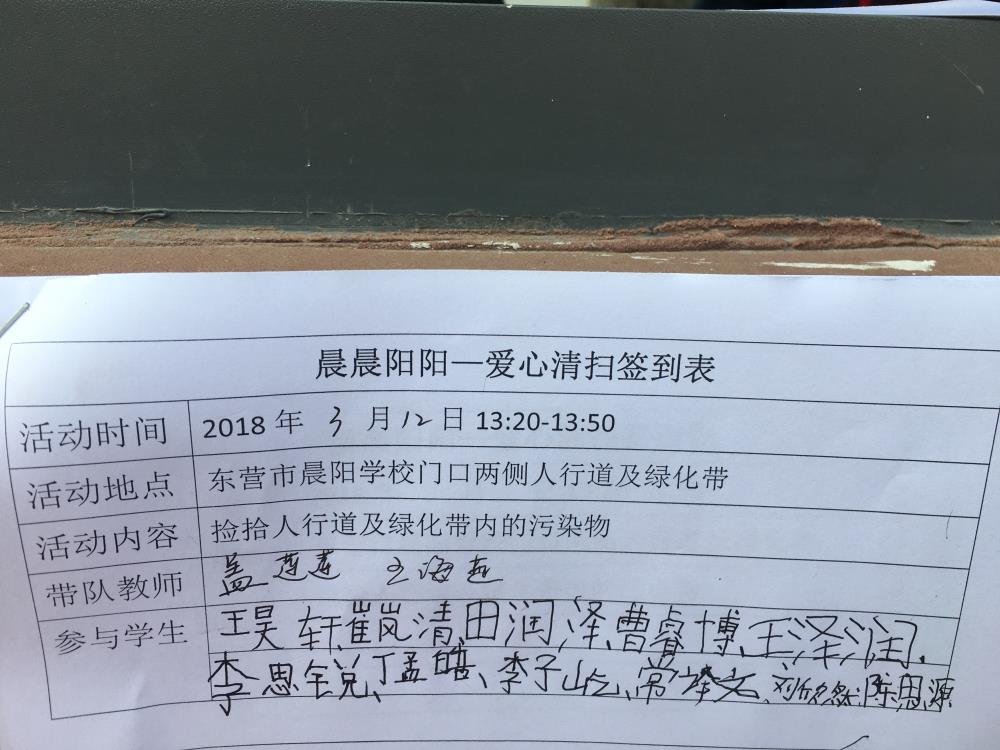 晨晨阳阳—爱心清扫签到表
活动时间 2018 年 3 月 12 日 13:20-13:50
活动地点 东营市晨阳学校门口两侧人行道及绿化带
活动内容 捡拾人行道及绿化带内的污染物
带队教师 盖莲莲 王海燕
参与学生 王昊轩、崔岚清、田润泽、曹睿博、王泽润、
李思锐、丁孟皓、李子屹、常峰文、刘欣然、陈思源